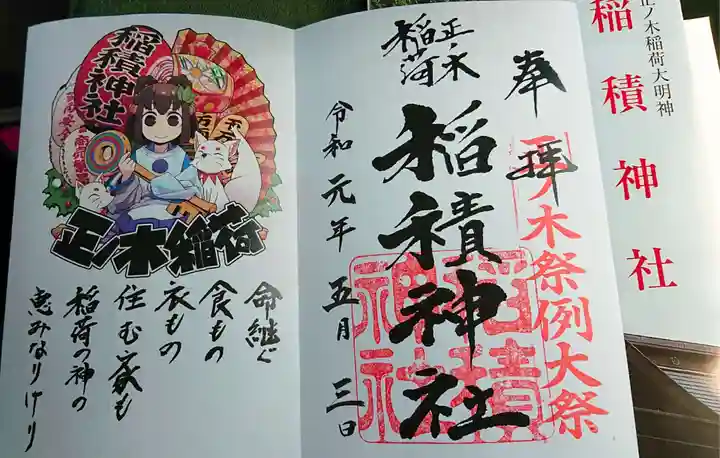 稲積神社
正ノ木稲荷大明神
奉拝
正ノ木祭例大祭
正ノ木
稲荷
稲積神社
稲積
神社
令和元年五月三日
稲積神社
正ノ木稲荷
命継ぐ
食もの
衣もの
住む家も
稲荷の神の
恵みなりけり